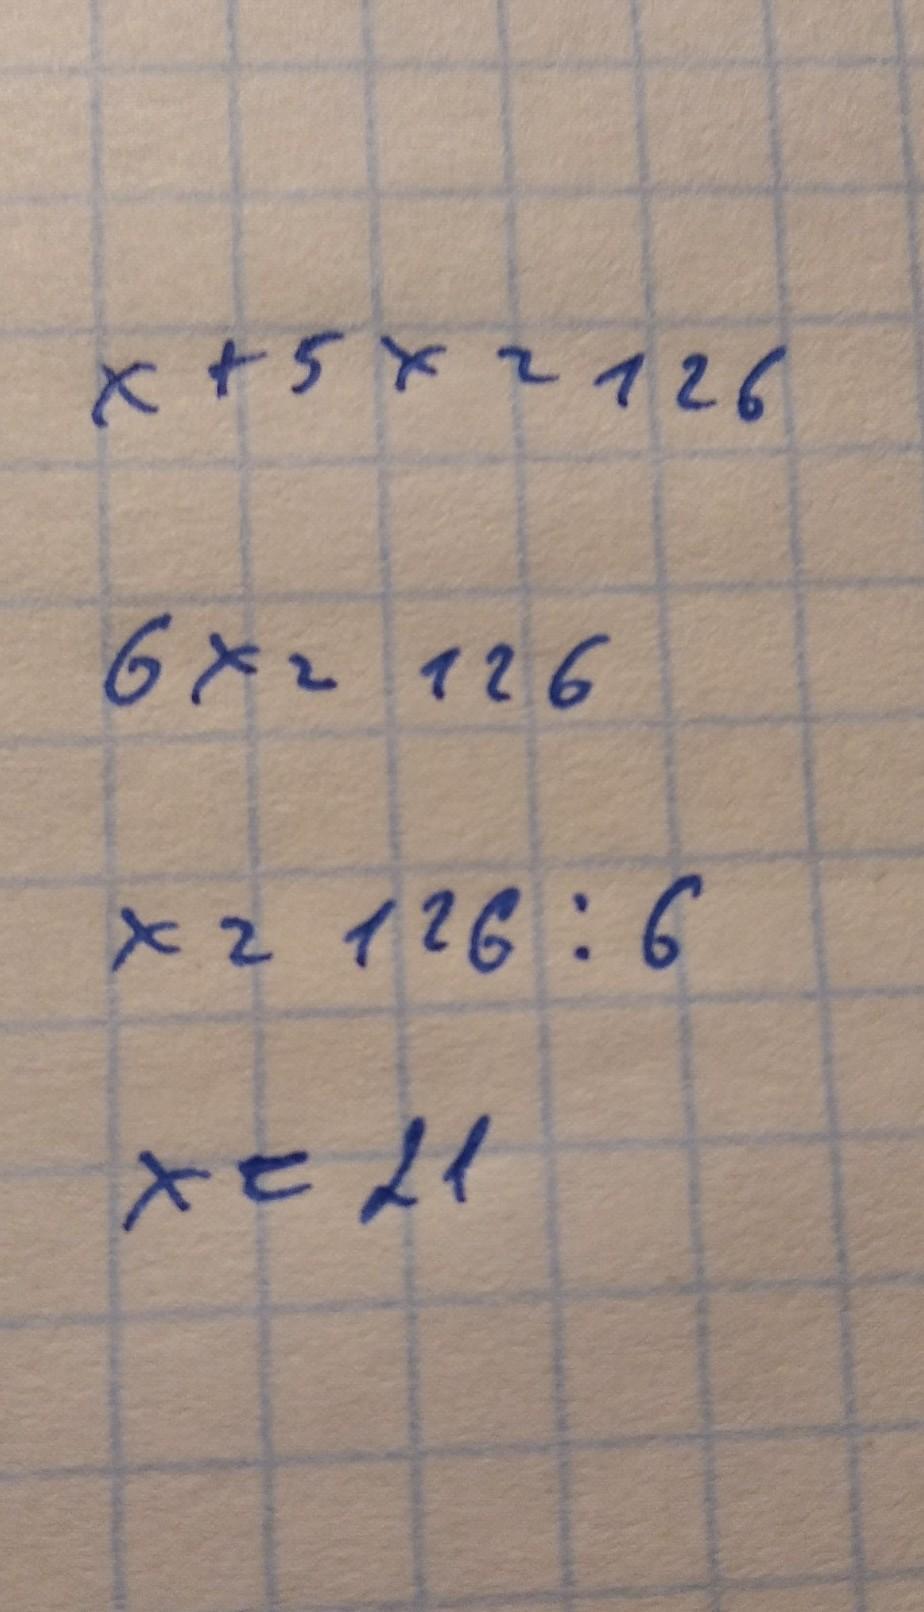 x + 5x = 126
6x = 126
x = 126 : 6
x = 21